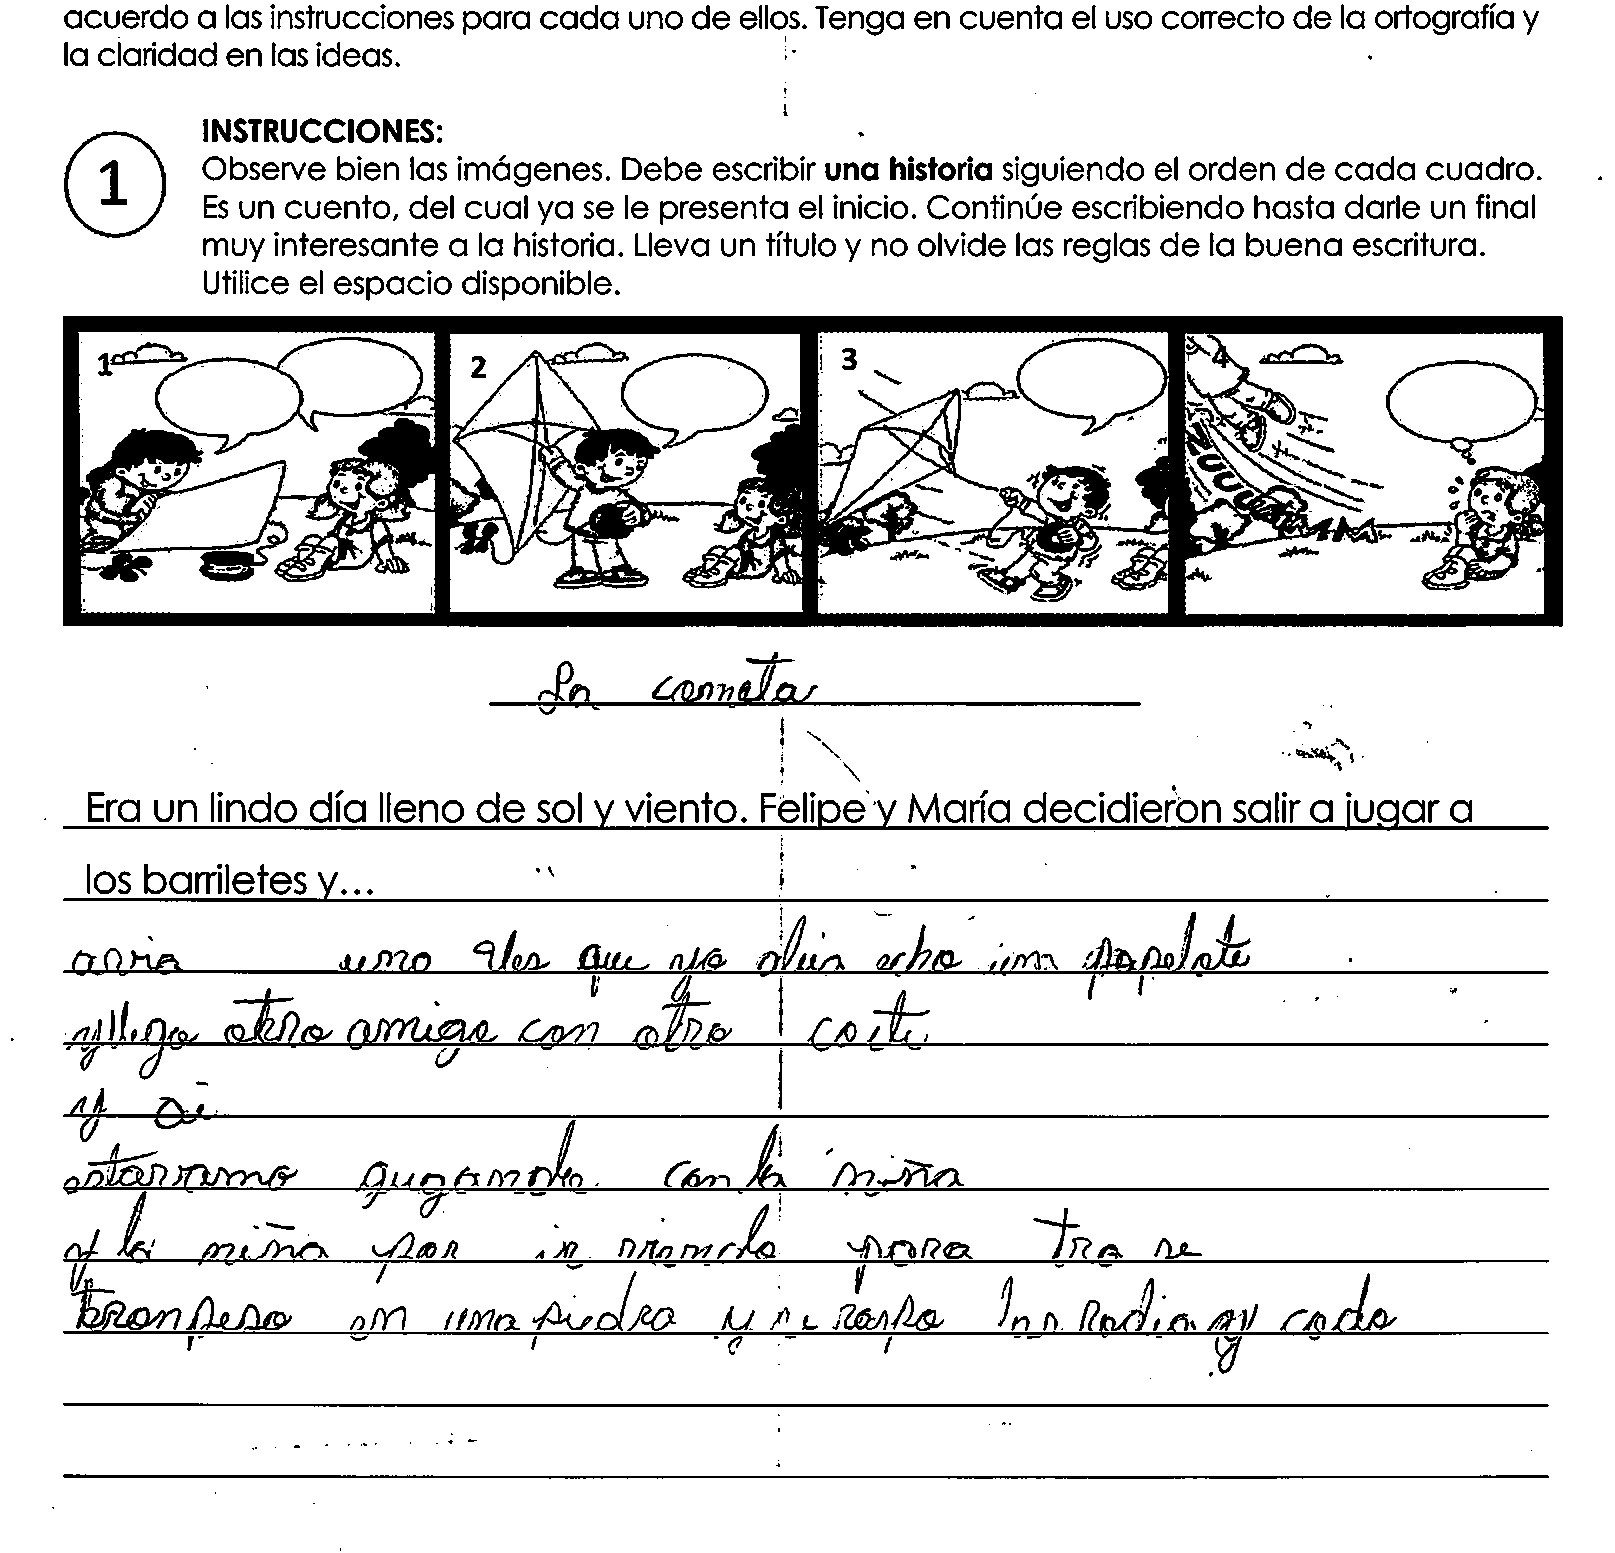 acuerdo a las instrucciones para cada uno de ellos. Tenga en cuenta el uso correcto de la ortografía y
la claridad en las ideas.
1
INSTRUCCIONES:
Observe bien las imágenes. Debe escribir una historia siguiendo el orden de cada cuadro.
Es un cuento, del cual ya se le presenta el inicio. Continúe escribiendo hasta darle un final
muy interesante a la historia. Lleva un título y no olvide las reglas de la buena escritura.
Utilice el espacio disponible.
1 2 3 4
ZUUUUMMM
La cometa
Era un lindo día lleno de sol y viento. Felipe y María decidieron salir a jugar a
los barriletes y...
avia uno que ya echo un papelote
y llego otro amigo con otro
y ai
estavamo gugando con la niña
y la niña por ir para tra se
tronpeso en una piedra y se raspo las rodia y codo